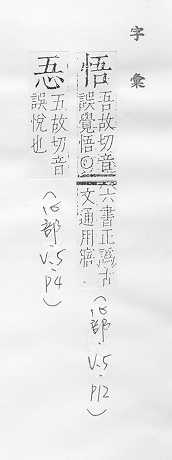 字彙
悟 吾故切音
誤覺悟○六書正譌古
文通用寤
(心部.V.5.P12)
㤅 五故切音
誤悅也
(心部.V.5.P4)